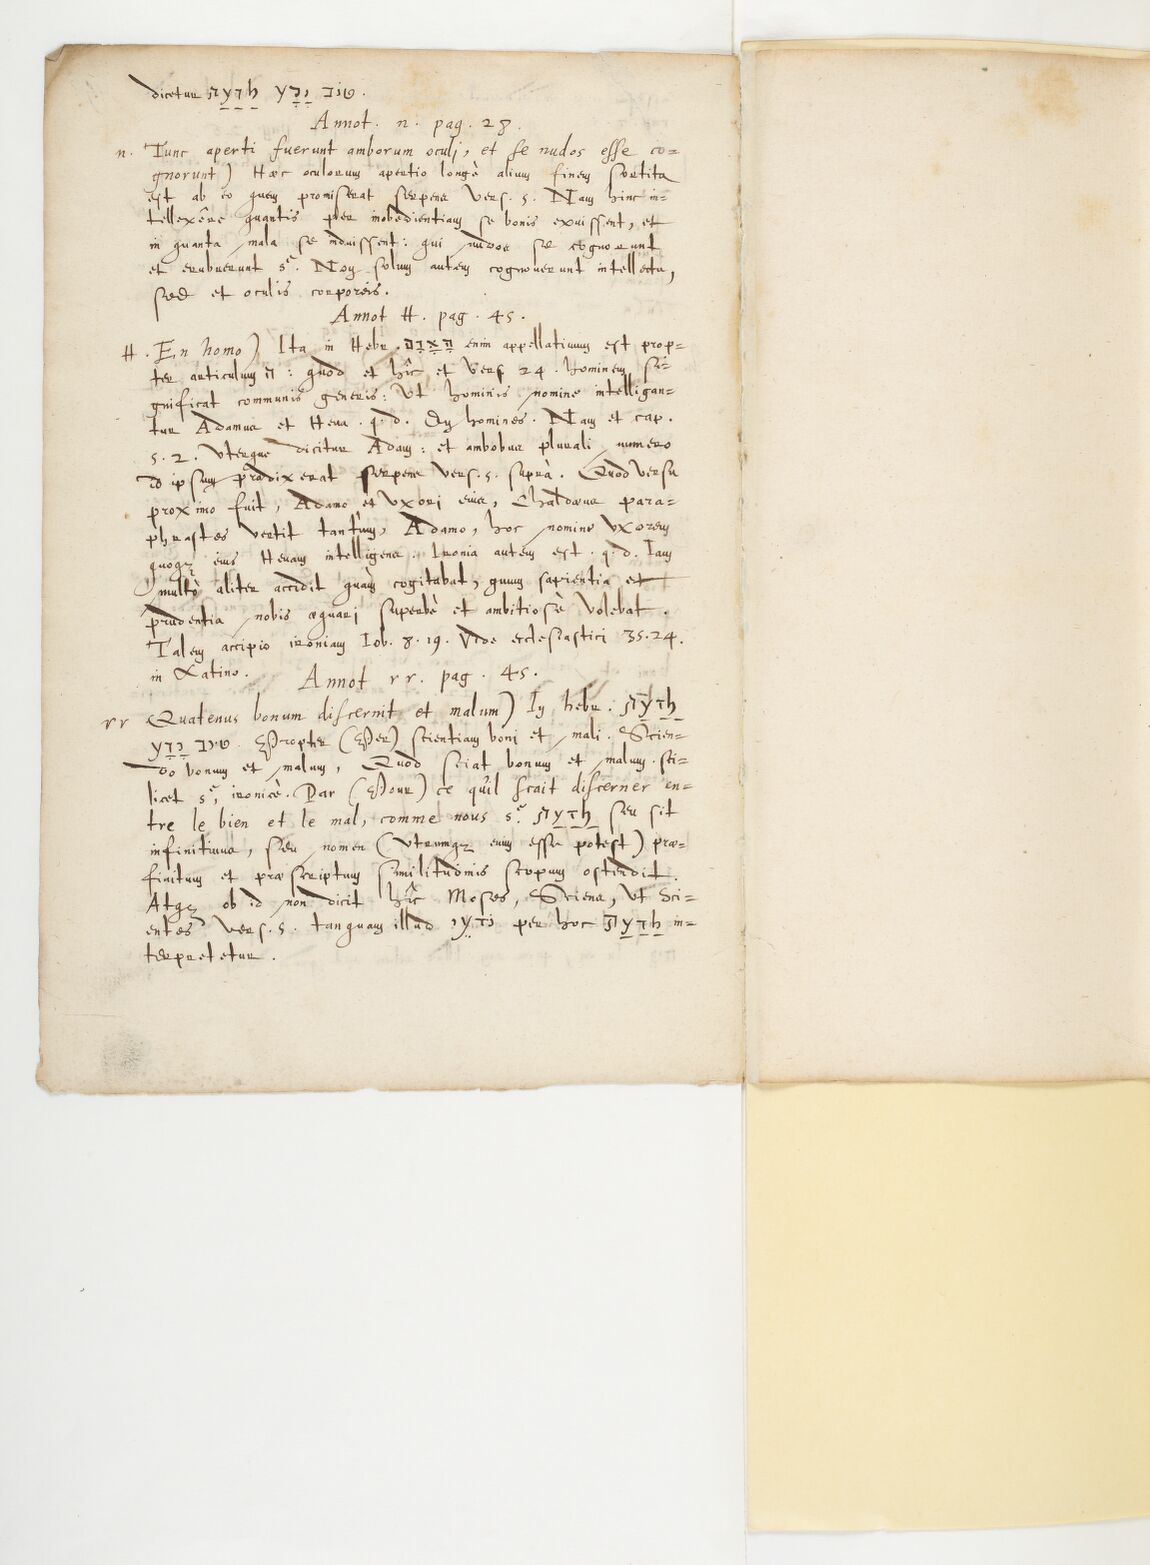 dicetur הדעת טוב ורע.
Annot. n. pag. 28.
n. Tunc aperti fuerunt amborum oculj, et se nudos esse co=
gnorunt) Hæc oculorum apertio longè alium finem sortita
est ab eo quem promiserat serpens vers. 5. Nam hinc in=
tellexêre quantis per inobedientiam se bonis exuissent, et
in quanta mala se induissent: qui nudos se cognorunt
et erubuerunt s.^c Non solum autem cognouerunt intellectu,
sed et oculis corporeis.
Annot tt. pag. 45.
tt. En homo) Ita in Hebr. הָאָדָם enim appellatiuum est prop=
ter articulum ה: quod et hîc et vers 24. hominem si=
gnificat communis generis: Vt hominis nomine intelligan=
tur Adamus et Heua. q. d. En homines. Nam et cap.
5. 2. vterque dicitur Adam: et ambobus plurali numero
id ipsum prædixerat serpens vers. 5. suprà. Quod versu
proximo fuit, Adamo et vxori eius, Chaldæus para=
phrastes vertit tantùm, Adamo, hoc nomine vxorem
quoq; eius Heuam intelligens. Ironia autem est. q. d. Iam
multò aliter accidit quàm cogitabat, quum sapientia et
prudentia nobis æquarj superbè et ambitiosè volebat.
Talem accipio ironiam Iob. 8. 19. Vide ecclesiastici 35. 24.
in Latino. Annot rr. pag. 45.
rr Quatenus bonum discernit et malum) In hebr. הדעת
טוב ורע. Propter (Per) scientiam bonj et mali. Scien=
do bonum et malum, Quod sciat bonum et malum. sci=
licet s.^c, ironicè. Par (Pour) ce qu'il scait discerner en=
tre le bien et le mal, comme nous s.^c הדעת seu sit
infinitiuus, seu nomen (vtrumq; enim esse potest) præ=
finitum et præscriptum similitudinis scopum ostendit.
Atq; ob id non dicit hîc Moses, Sciens, vt Sci=
entes vers. 5. tanquam illud ידעי per hoc הדעת in=
terpretetur.